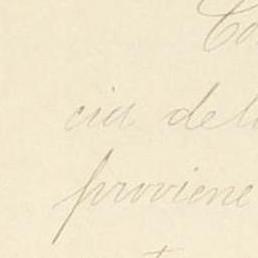 Co
cia del
proviene